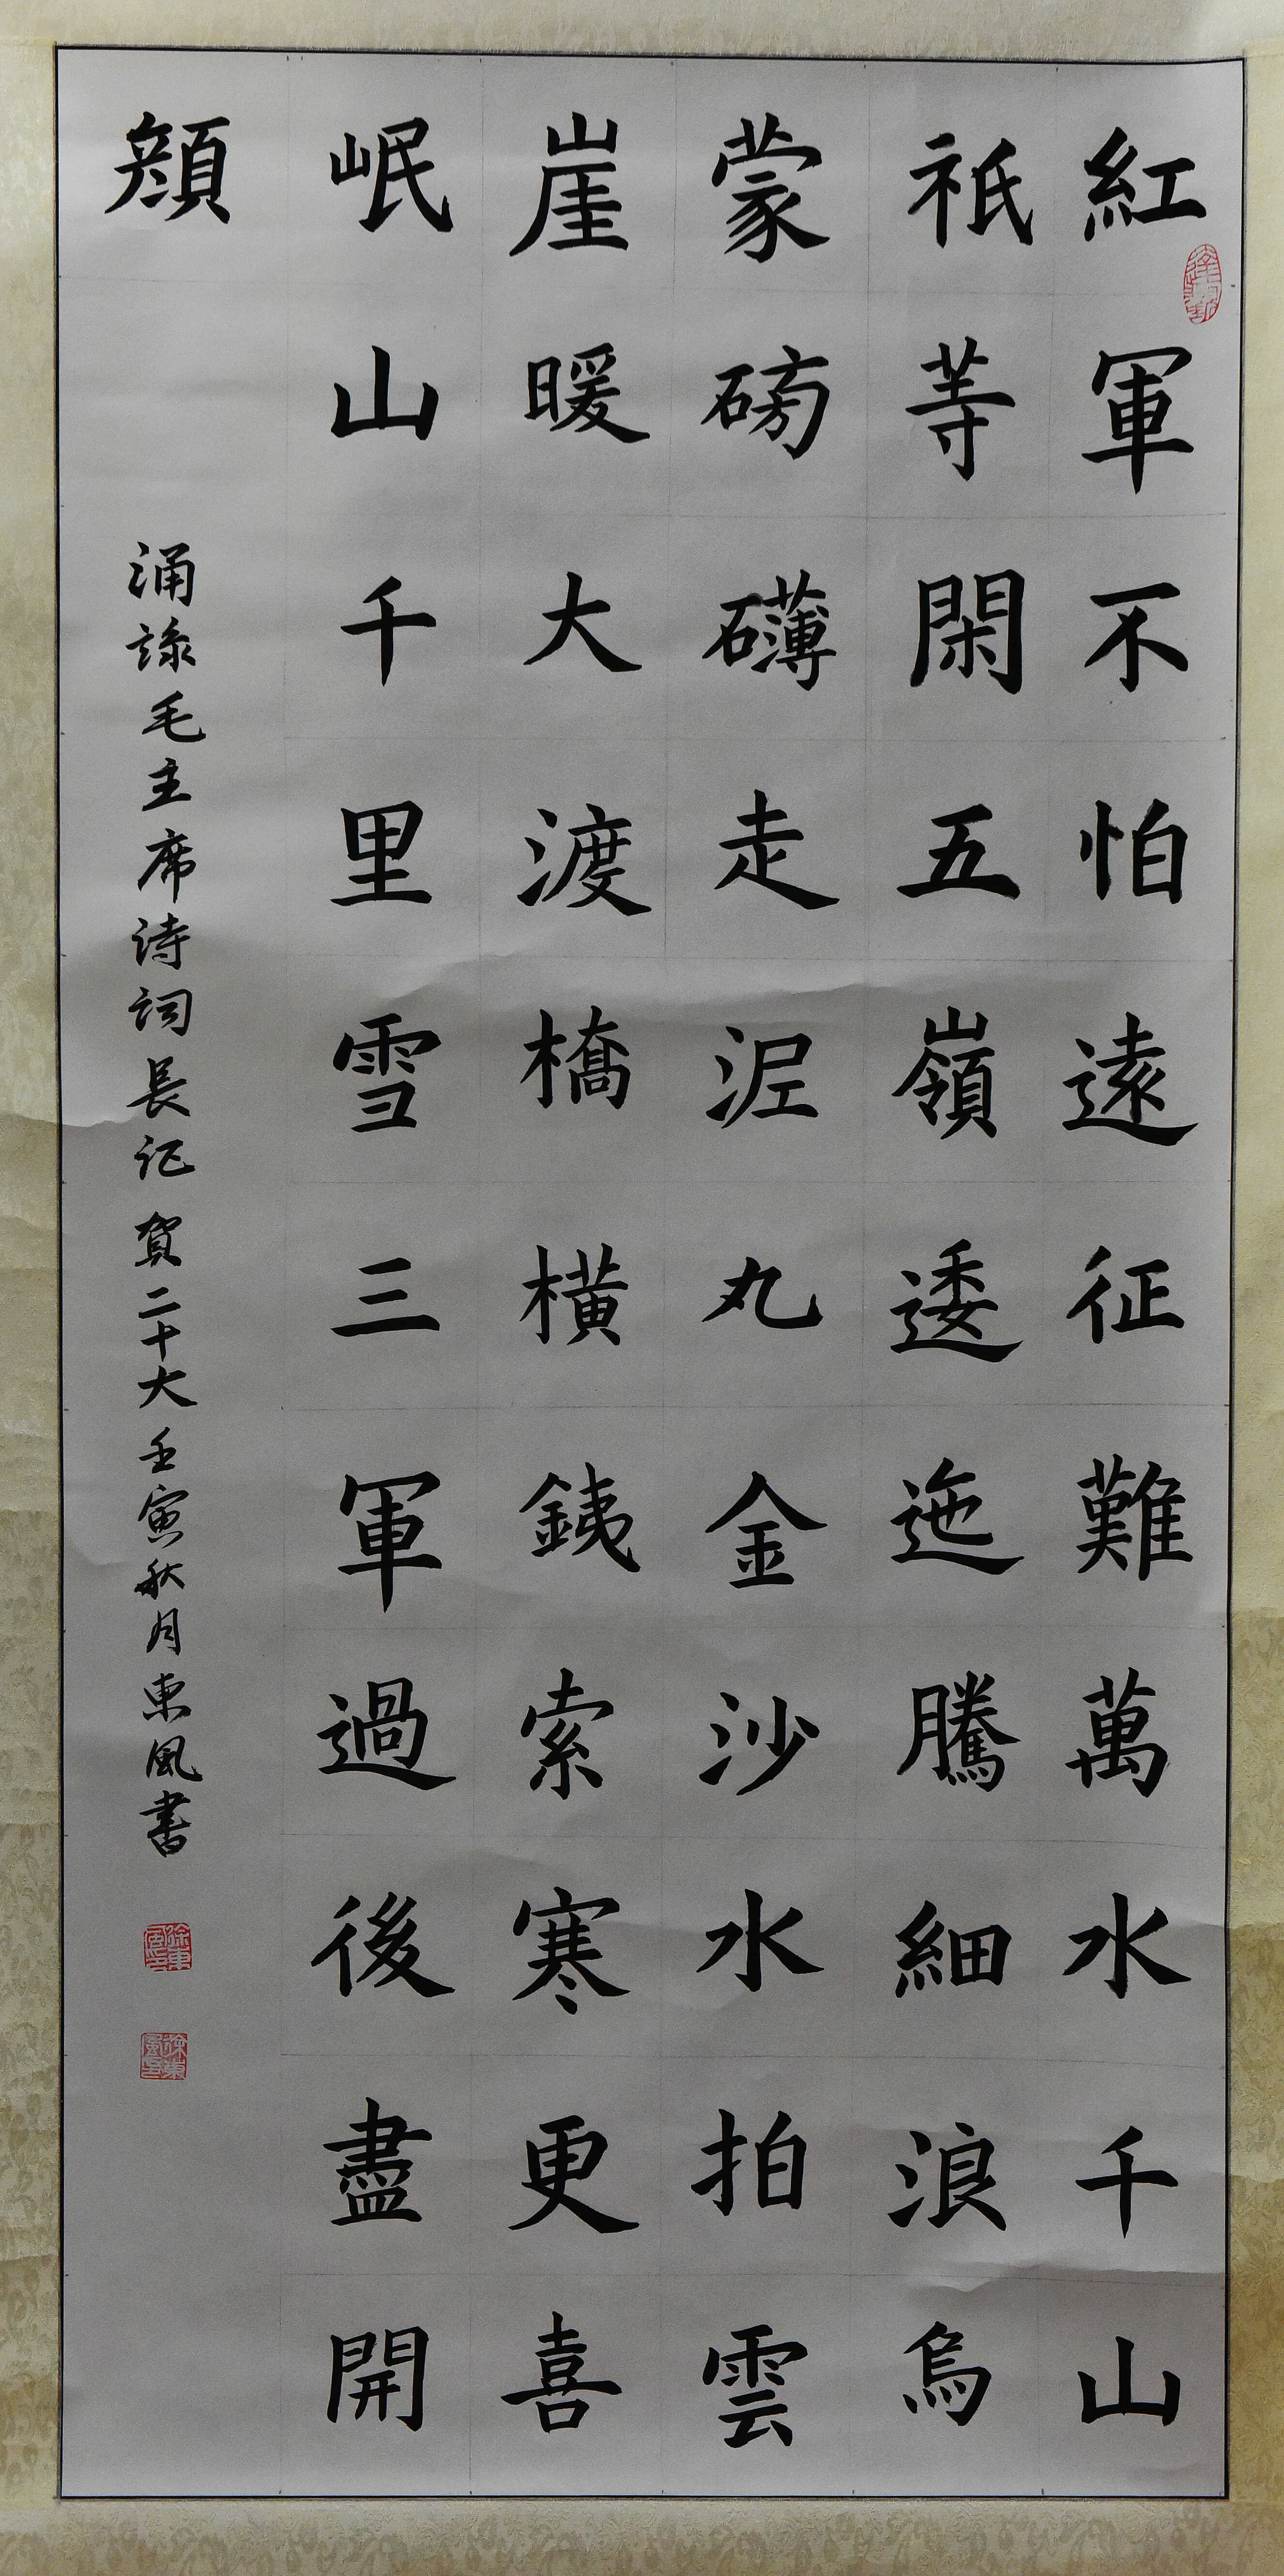 紅軍不怕遠征難萬水千山
祇䓁閑五嶺逶迤騰細浪烏
蒙磅礴走泥丸金沙水拍雲
崖暖大渡橋橫銕索寒更喜
岷山千里雪三軍過後盡開
顏
涌録毛主席诗词長征 賀二十大 壬寅秋月東風書